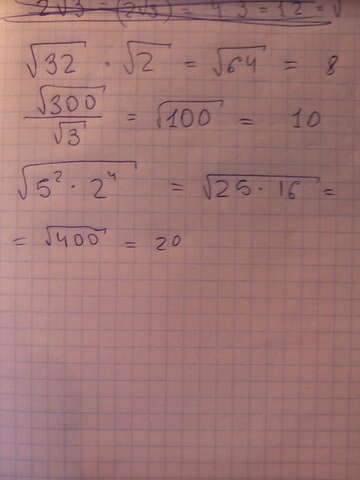 √32 · √2 = √64 = 8
√300 / √3 = √100 = 10
√5² · 2⁴ = √25 · 16 =
= √400 = 20